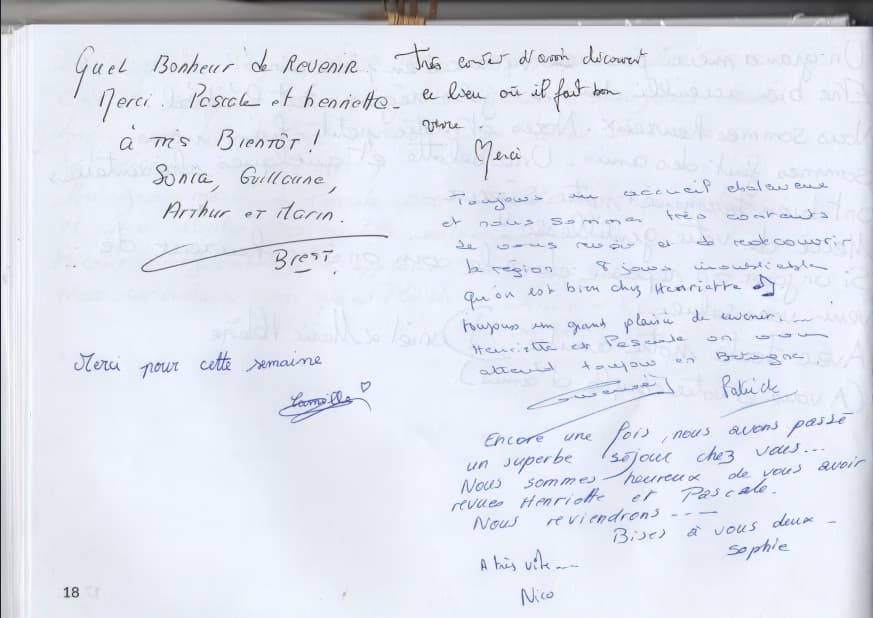 Quel Bonheur de Revenir.
Merci. Pascale et henriette.
à très Bientôt!
Sonia, Guillaune,
Arthur et Marin.
Brest.
Très d'avoir découvert
ce lieu où il fait bon
vivre.
Merci
Toujours un accueil chaleureux
et nous sommes très contents
de vous revoir et de redécouvrir
la région 8 jours inoubliable
qu'on est bien chez Henriette ♫
toujours un grand plaisir de revenir......
Henriette et Pascale on vous
attend toujour en Bretagne
Patrick
Merci pour cette semaine
Camille ♡
Encore une fois, nous avons passé
un superbe séjour chez vous...
Nous sommes heureux de vous avoir
revues Henriette et Pascale.
Nous reviendrons ----
Bises à vous deux -
Sophie
A très vite...
Nico
18